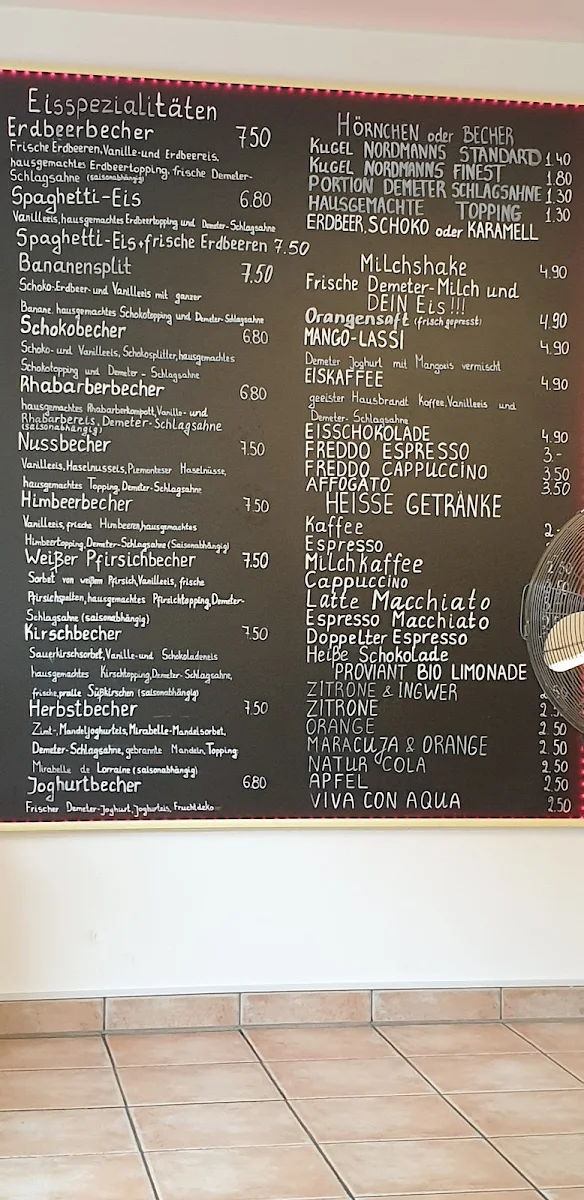 Eisspezialitäten
Erdbeerbecher 7.50
Frische Erdbeeren, Vanille-und Erdbeereis,
hausgemachtes Erdbeertopping, frische Demeter-
Schlagsahne (saisonabhängig)
Spaghetti-Eis 6.80
Vanilleeis, hausgemachtes Erdbeertopping und Demeter-Schlagsahne
Spaghetti-Eis+frische Erdbeeren 7.50
Bananensplit 7.50
Schoko-Erdbeer-und Vanilleeis mit ganzer
Banane, hausgemachtes Schokotopping und Demeter-Schlagsahne
Schokobecher 6.80
Schoko-und Vanilleeis, Schokosplitter, hausgemachtes
Schokotopping und Demeter-Schlagsahne
Rhabarberbecher 6.80
hausgemachtes Rhabarberkompott, Vanille-und
Rhabarbereis, Demeter-Schlagsahne
(saisonabhängig)
Nussbecher 7.50
Vanilleeis, Haselnusseis, Piemonteser Haselnüsse,
hausgemachtes Topping, Demeter-Schlagsahne
Himbeerbecher 7.50
Vanilleeis, frische Himbeeren, hausgemachtes
Himbeertopping, Demeter-Schlagsahne (Saisonabhängig)
Weißer Pfirsichbecher 7.50
Sorbet von weißem Pfirsich, Vanilleeis, frische
Pfirsichspalten, hausgemachtes Pfirsichtopping, Demeter-
Schlagsahne (saisonabhängig)
Kirschbecher 7.50
Sauerkirschsorbet, Vanille-und Schokoladeneis
hausgemachtes Kirschtopping, Demeter-Schlagsahne,
frische, pralle Süßkirschen (saisonabhängig)
Herbstbecher 7.50
Zimt-, Mandeljoghurteis, Mirabelle-Mandelsorbet,
Demeter-Schlagsahne, gebrannte Mandeln, Topping:
Mirabelle de Lorraine (saisonabhängig)
Joghurtbecher 6.80
Frischer Demeter-Joghurt, Joghurteis, Fruchtdeko
HÖRNCHEN oder BECHER
KUGEL NORDMANNS STANDARD 1.40
KUGEL NORDMANNS FINEST 1.80
PORTION DEMETER SCHLAGSAHNE 1.30
HAUSGEMACHTE TOPPING 1.30
ERDBEER, SCHOKO oder KARAMELL
Milchshake 4.90
Frische Demeter-Milch und
DEIN Eis!!!
Orangensaft (frisch gepresst) 4.90
MANGO-LASSI 4.90
Demeter Joghurt mit Mangoeis vermischt
EISKAFFEE 4.90
geeister Hausbrandt Kaffee, Vanilleeis und
Demeter-Schlagsahne
EISSCHOKOLADE 4.90
FREDDO ESPRESSO 3.-
FREDDO CAPPUCCINO 3.50
AFFOGATO 3.50
HEISSE GETRÄNKE
Kaffee 2.-
Espresso
Milchkaffee
Cappuccino
Latte Macchiato
Espresso Macchiato
Doppelter Espresso
Heiße Schokolade
PROVIANT BIO LIMONADE
ZITRONE & INGWER
ZITRONE
ORANGE 2.50
MARACUJA & ORANGE 2.50
NATUR COLA 2.50
APFEL 2.50
VIVA CON AQUA 2.50